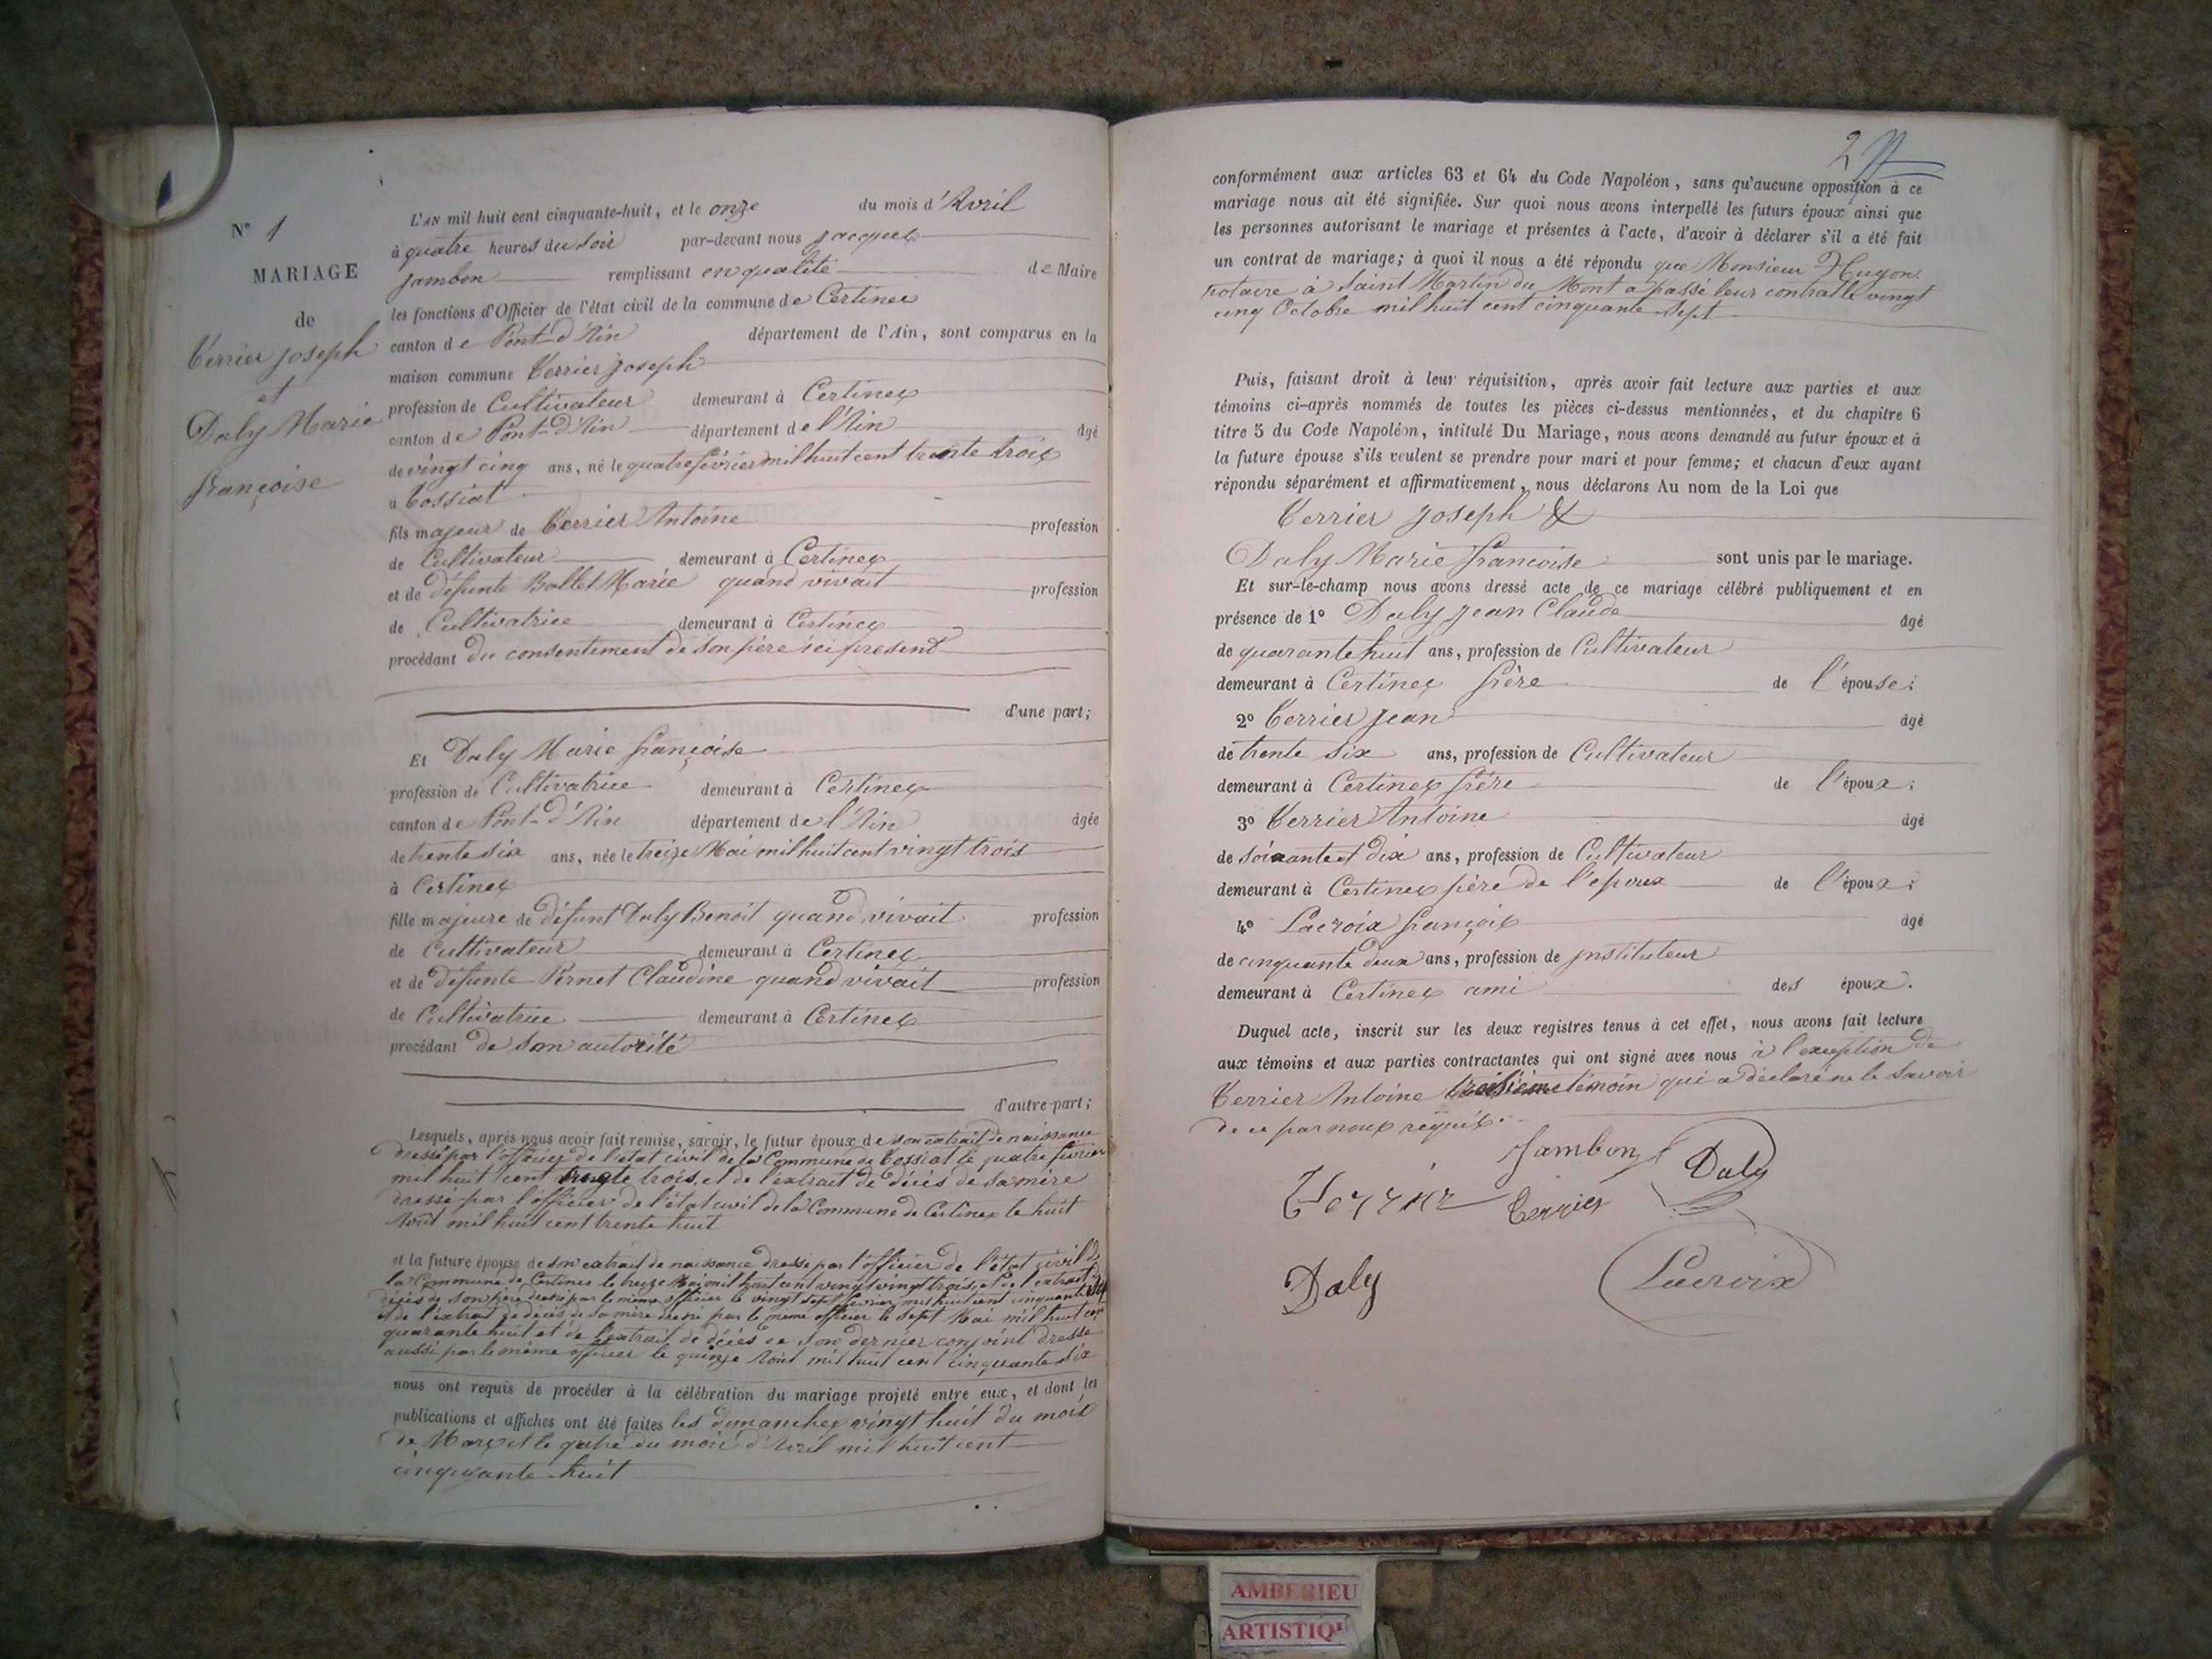 N° 1
MARIAGE
de
Verrier Joseph
et
Daly Marie
françoise
L'AN mil huit cent cinquante-huit, et le onze du mois d'Avril
à quatre heures du Soir par-devant nous Jacques
Jambon remplissant en qualité de Maire
les fonctions d'Officier de l'état civil de la commune de Certines
canton de Pont-d'Ain département de l'Ain, sont comparus en la
maison commune Verrier Joseph
profession de Cultivateur demeurant à Certines
canton de Pont-d'Ain département de l'Ain âgé
de vingt cinq ans, né le quatre février mil huit cent trente trois
à Tossiat
fils majeur de Verrier Antoine profession
de Cultivateur demeurant à Certines
et de défunte Ballet Marie quand vivait profession
de Cultivatrice demeurant à Certines
procédant du consentement de son père ici présent
d'une part;
Et Daly Marie françoise
profession de Cultivatrice demeurant à Certines
canton de Pont-d'Ain département de l'Ain âgée
de trente six ans, née le treize Mai mil huit cent vingt trois
à Certines
fille majeure de défunt Daly Benoit quand vivait profession
de Cultivateur demeurant à Certines
et de défunte Pernet Claudine quand vivait profession
de Cultivatrice demeurant à Certines
procédant de son autorité
d'autre part;
Lesquels, après nous avoir fait remise, savoir, le futur époux de son extrait de naissance
dressé par l'officier de l'état civil de la Commune de Tossiat le quatre février
mil huit cent trente trois, et de l'extrait de décès de sa mère
dressé par l'officier de l'état civil de la Commune de Certines le huit
Août mil huit cent trente huit
et la future épouse de son extrait de naissance dressé par l'officier de l'état civil de
la Commune de Certines le treize Mai mil huit cent vingt trois, et de l'extrait de
décès de son père dressé par le même officier le vingt sept février mil huit cent cinquante
et de l'extrait de décès de sa mère dressé par le même officier le sept Mai mil huit cent
quarante huit et de l'extrait de décès de son dernier conjoint dressé
aussi par le même officier le quinze Août mil huit cent cinquante six
nous ont requis de procéder à la célébration du mariage projeté entre eux, et dont les
publications et affiches ont été faites les dimanches vingt huit du mois
de Mars et le quatre du mois d'Avril mil huit cent
cinquante-huit
2
conformément aux articles 63 et 64 du Code Napoléon, sans qu'aucune opposition à ce
mariage nous ait été signifiée. Sur quoi nous avons interpellé les futurs époux ainsi que
les personnes autorisant le mariage et présentes à l'acte, d'avoir à déclarer s'il a été fait
un contrat de mariage; à quoi il nous a été répondu que Monsieur Hugon
notaire à Saint Martin du Mont a passé leur contrat le vingt
cinq Octobre mil huit cent cinquante sept
Puis, faisant droit à leur réquisition, après avoir fait lecture aux parties et aux
témoins ci-après nommés de toutes les pièces ci-dessus mentionnées, et du chapitre 6
titre 5 du Code Napoléon, intitulé Du Mariage, nous avons demandé au futur époux et à
la future épouse s'ils veulent se prendre pour mari et pour femme; et chacun d'eux ayant
répondu séparément et affirmativement, nous déclarons Au nom de la Loi que
Verrier Joseph &
Daly Marie françoise sont unis par le mariage.
Et sur-le-champ nous avons dressé acte de ce mariage célébré publiquement et en
présence de 1° Daly Jean Claude âgé
de quarante huit ans, profession de Cultivateur
demeurant à Certines frère de l'épouse;
2° Verrier Jean âgé
de trente six ans, profession de Cultivateur
demeurant à Certines frère de l'époux;
3° Verrier Antoine âgé
de soixante et dix ans, profession de Cultivateur
demeurant à Certines père de l'époux de l'époux;
4° Lacroix françois âgé
de cinquante deux ans, profession de Instituteur
demeurant à Certines ami des époux.
Duquel acte, inscrit sur les deux registres tenus à cet effet, nous avons fait lecture
aux témoins et aux parties contractantes qui ont signé avec nous à l'exception de
Verrier Antoine troisième témoin qui a déclaré ne le savoir
de ce par nous requis.
Jambon Daly
Verrier Verrier
Daly Lacroix
AMBERIEU
ARTISTIQ